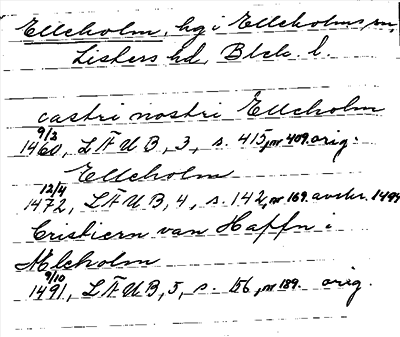 Elleholm, hg i Elleholms sn,
Listers hd, Blek. l.
castri nostri Elleholm
9/2
1460, LÄUB, 3, s. 415, nr 409. orig.
Elleholm
12/4
1472, LÄUB, 4, s. 142, nr 169. avskr. 1494
Cristiern van Haffn i
Ælcholm
9/10
1491, LÄUB, 5, s. 156, nr 189. orig.